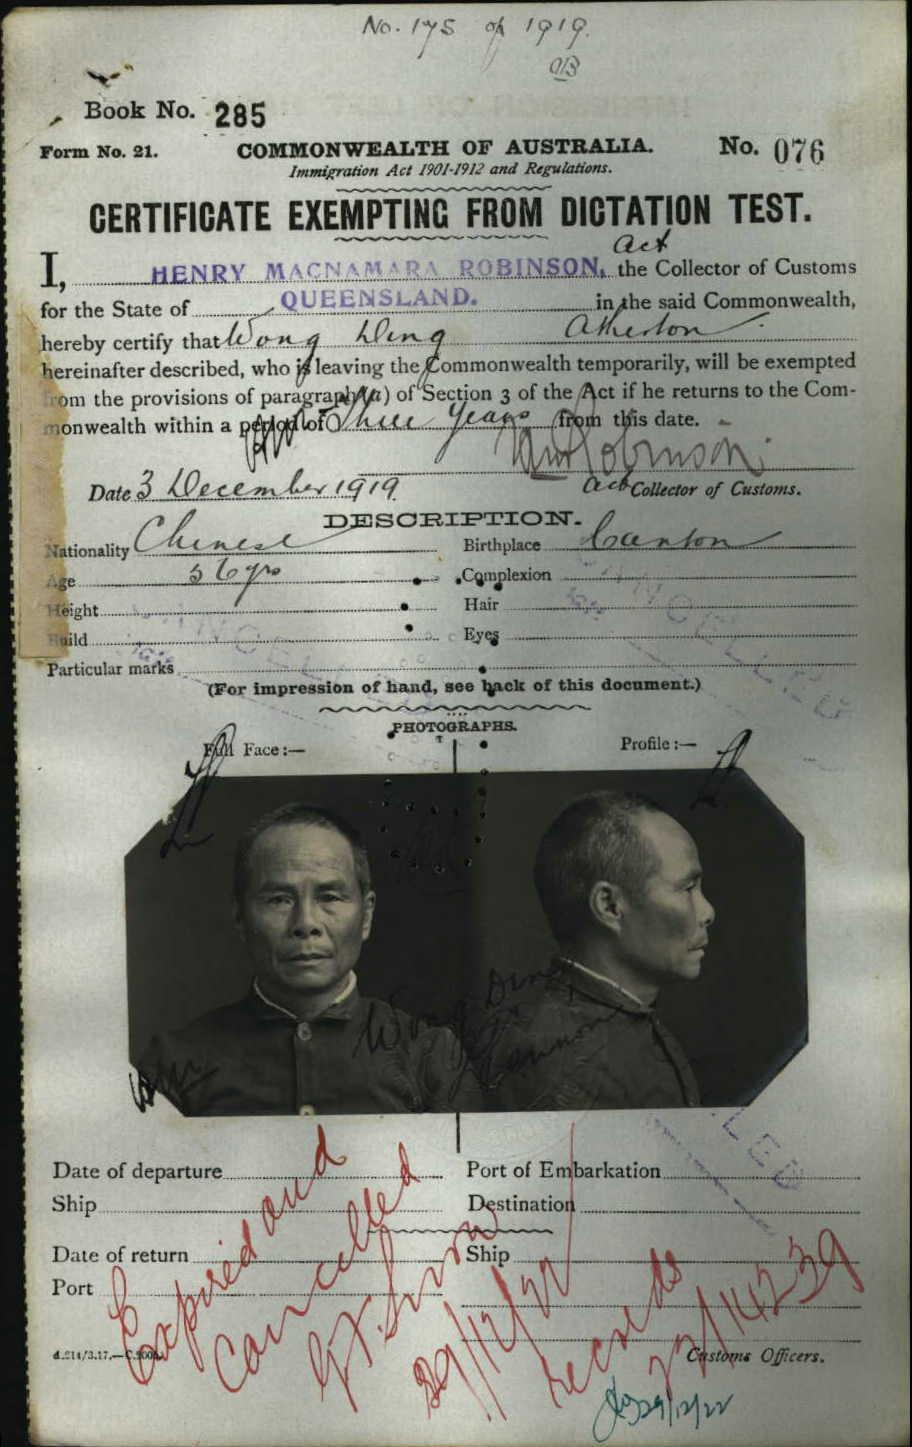 No. 175 of 1919.
Book No. 285
Form No. 21.
COMMONWEALTH OF AUSTRALIA.
No. 076
Immigration Act 1901-1912 and Regulations.
CERTIFICATE EXEMPTING FROM DICTATION TEST.
Act
I, HENRY MACNAMARA ROBINSON, the Collector of Customs
for the State of QUEENSLAND. in the said Commonwealth,
hereby certify that Wong Ding Atherton
hereinafter described, who is leaving the Commonwealth temporarily, will be exempted
from the provisions of paragraph (a) of Section 3 of the Act if he returns to the Com-
monwealth within a period of Three years from this date.
Robinson
Date 3 December 1919
Act Collector of Customs.
DESCRIPTION.
Nationality Chinese
Birthplace Canton
Age 56 yrs
Complexion
Height
Hair
Build
Eyes
Particular marks
(For impression of hand, see back of this document.)
PHOTOGRAPHS.
Full Face :—
Profile :—
CANCELLED
Wong Ding
Date of departure
Port of Embarkation
Ship
Destination
Date of return
Ship
Port
Expired and
Cancelled
29/12/22
Records
22/14239
Customs Officers.
29/12/22